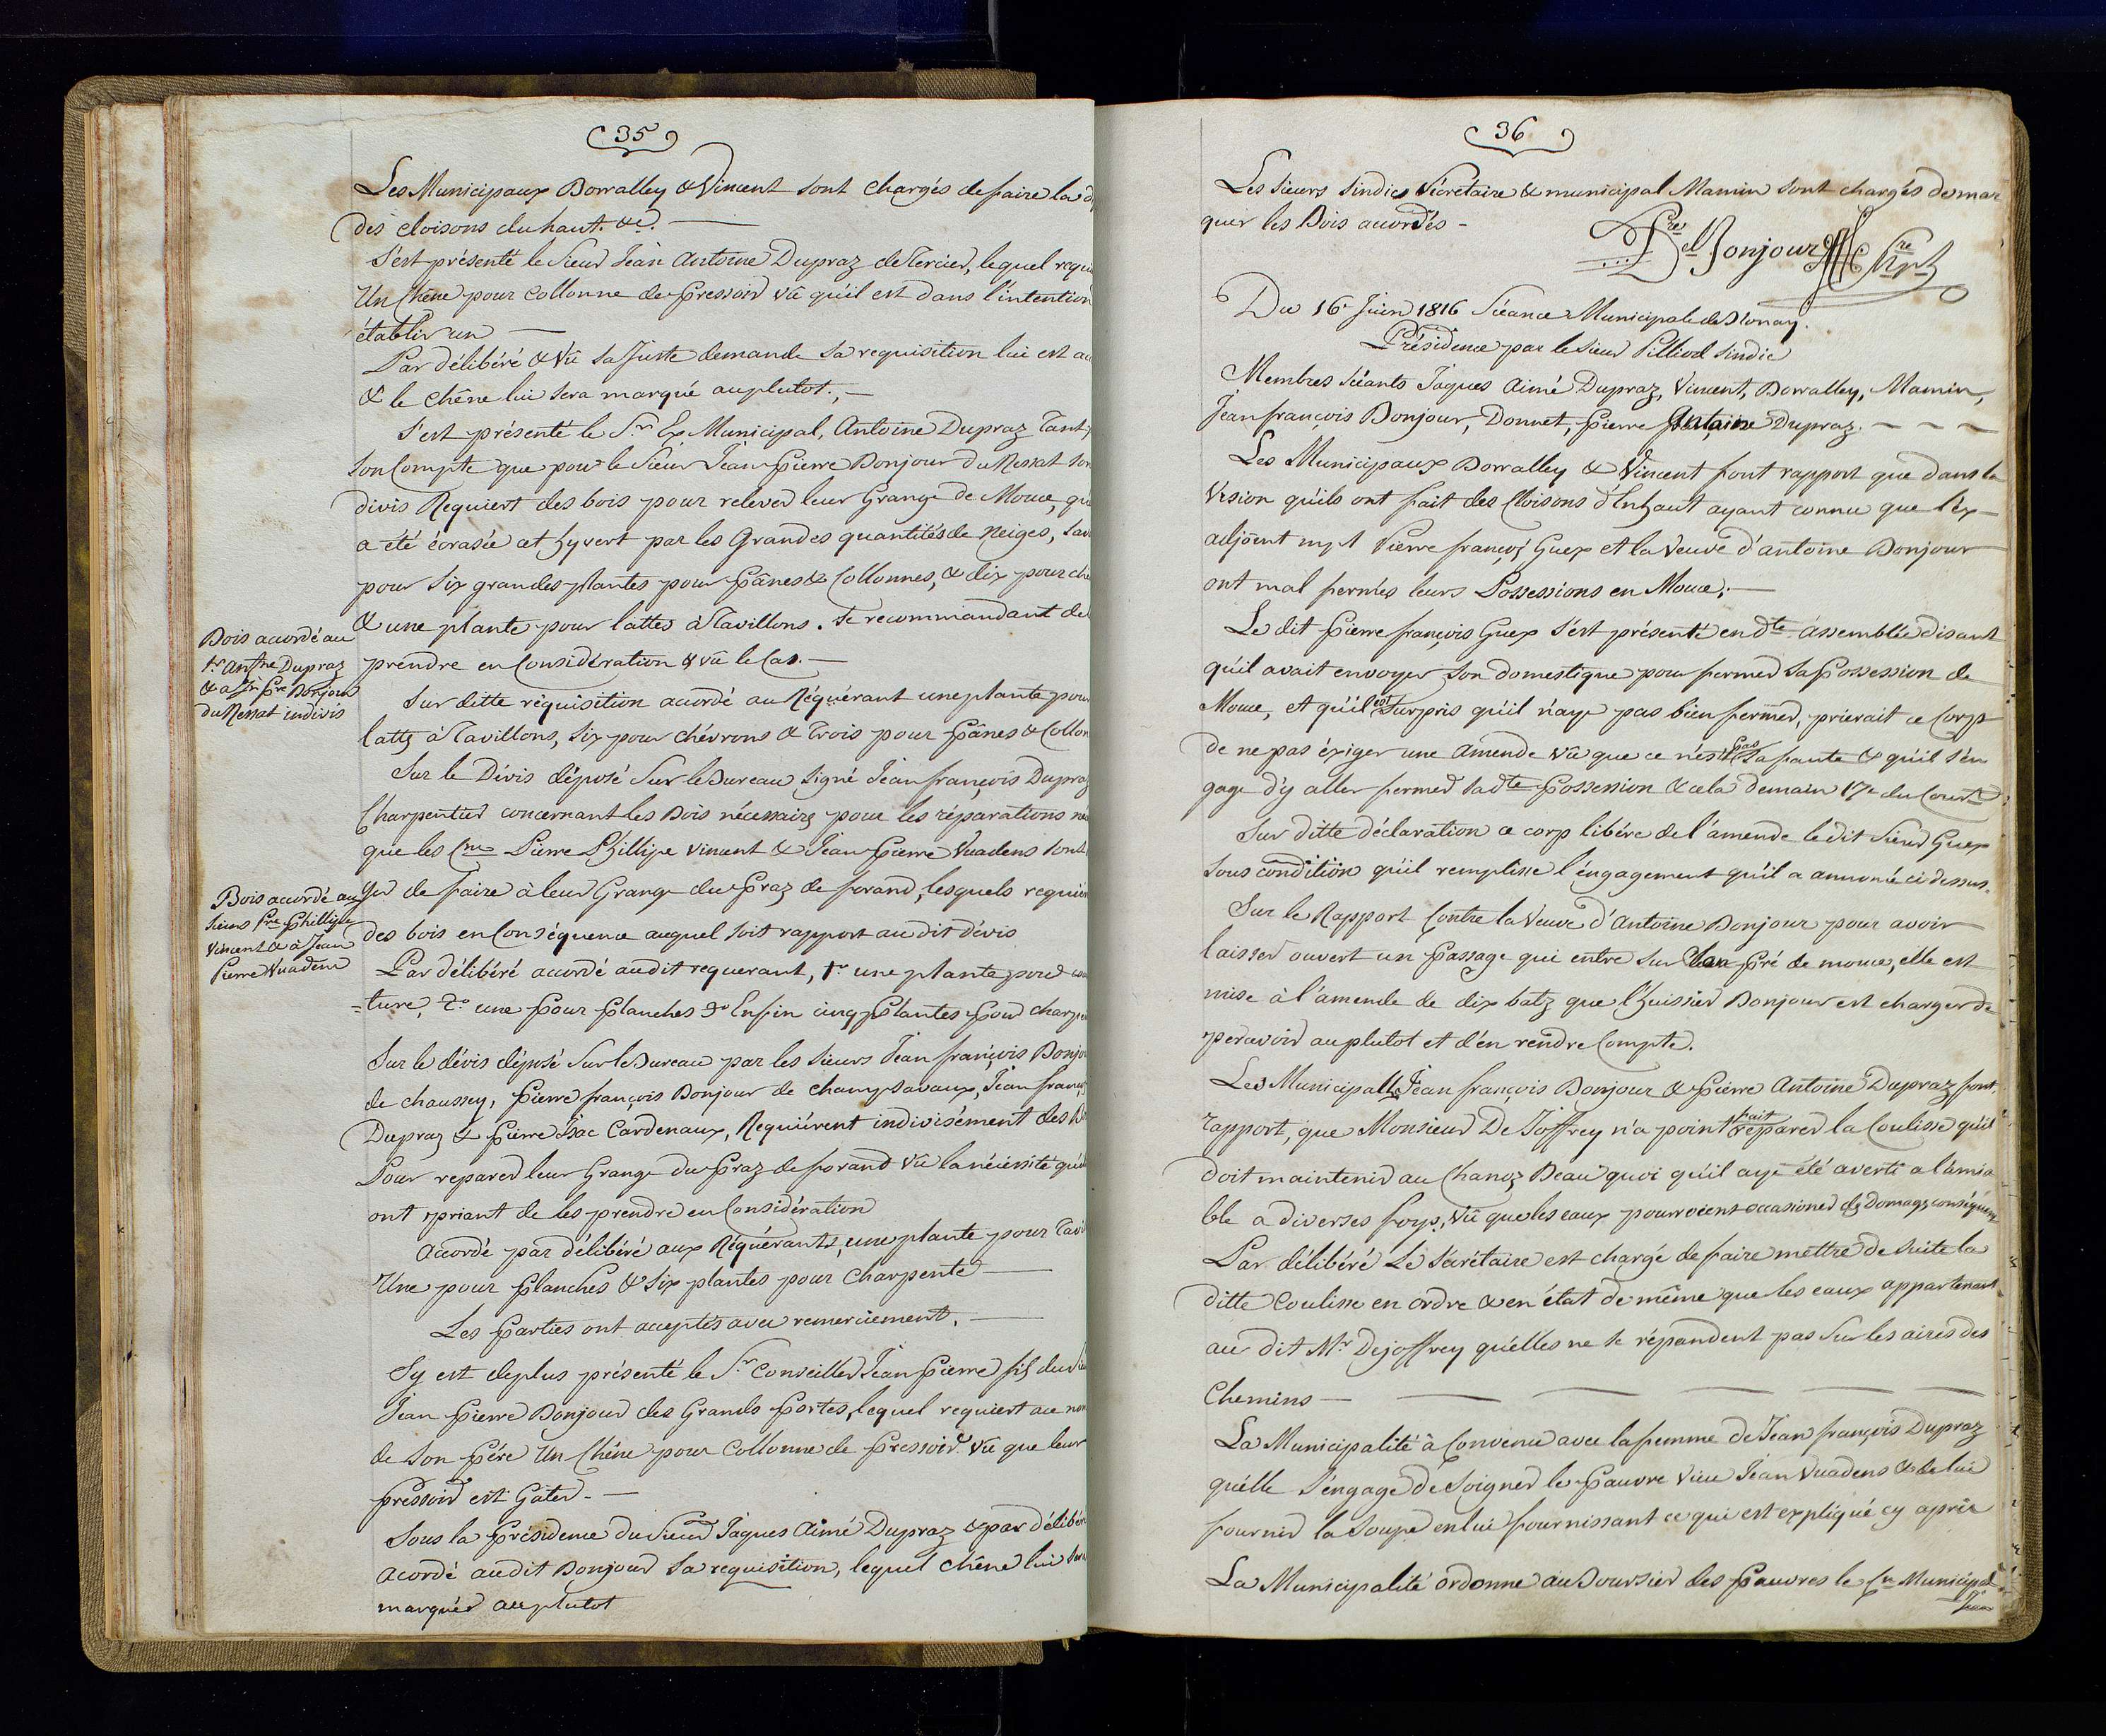 35
Les Municipaux Dorvalley & Vincent sont chargés de faire la
des cloisons du haut. &c.
S'est présenté le Sieur Jean Antoine Dupraz de Tercier, lequel
Un Chêne pour Collonne de Pressoir vû qu'il est dans l'intention
établir un
Par délibéré & Vû sa Juste demande sa requisition lui est
& le Chêne lui sera marqué auplutot.,
S'est présenté le S.r Ex Municipal, Antoine Dupraz Tant
son Compte que pour le Sieur Jean Pierre Bonjour Du Ressat
divis Requiert des bois pour relever leur Grange de Moue,
a été écrasée cet hyvert par les Grandes quantités de Neiges,
pour Six grandes plantes pour Pânes & Collonnes, & dix pour
& une plante pour lattes à Tavillons. Se recommandant de
prendre en Considération & vû le Cas.
Bois accordé au
Sr Antne Dupraz
& a Jn Pre Bonjour
du Ressat indivis
Sur ditte réquisition acordé au Réquérant une plante pour
lattes à Tavillons, Six pour chévrons & Trois pour Pânes &
Sur le Dévis déposé Sur le Bureau, Signé Jean françois Dupraz
Charpentier concernant les Bois nécessaires pour les réparations
que les Srs Pierre Phillipe Vincent & Jean Pierre Vuadens sont
ger de faire à leur Grange du Praz de forand, lesquels
des bois en Conséquence auquel soit rapport au dit dévis
Bois accordé aux
Sieurs Pre Phillipe
Vincent & à Jean
Pierre Vuadens
Par délibéré accordé audit requerant, 1o une plante pour
=ture, 2o une Pour Planches 3o Enfin cinq Plantes Pour
Sur le dévis déposé Sur le Bureau par les Sieurs Jean françois
de chaussey, Pierre françois Bonjour de Champsavaux, Jean
Dupraz & Pierre Isac Cardenaux, Requiérent indivisément des
Pour reparer leur Grange du Praz de forand Vû la nécéssité
ont priant de les prendre en Considération
Acordé par délibéré aux Réquérants, une plante pour
Une pour Planches & Six plantes pour Charpente
Les Parties ont acceptés avec remerciement.
Sy est deplus présenté le S.r Conseiller Jean Pierre fils du
Jean Pierre Bonjour des Grands Portes, lequel requiert au
de Son Pére Un Chêne pour Collonne de Pressoir Vû que leur
Pressoir est Gâter.
Sous la Présidence du Sieur Jaques Aimé Dupraz & par
Acordé audit Bonjour Sa requisition, lequel chêne lui
marquér auplutot
36
Les Sieurs Sindic, Sécrétaire & municipal Mamin sont chargés de mar
quer les Bois accordés -
Bonjour
Du 16e Juin 1816 Séance Municipale de Blonay.
Présidence par le Sieur Pilliod Sindic
Membres Séants Jaques Aimé Dupraz, Vincent, Dorvalley, Mamin,
Jean françois Bonjour, Donnet, Pierre Antoine Dupraz.
Les Municipaux Dorvalley & Vincent font rapport que dans la
Vision qu'ils ont fait des Cloisons d'Enhaut ayant connu que l'ex
adjoint mpl Pierre franços Guex et la Veuve d'antoine Bonjour
ont mal fermés leurs Possessions en Moue;
Le dit Pierre françois Guex s'est présenté en dte assemblée disant
qu'il avait envoyer Son domestique pour fermer Sa Possession de
Moue, et qu'il est Surpris qu'il n'aye pas bien fermer, prierait ce Corps
de ne pas éxiger une Amende Vû que ce n'est pas Sa faute & qu'il s'en
gage d'y aller fermer sadte Possession & cela demain 17e du Court
Sur ditte déclaration ce corp libére de l'amende le dit Sieur Guex
Sous condition qu'il remplisse l'éngagement qu'il a annoncé ci dessus.
Sur le Rapport Contre la Veuve d'Antoine Bonjour pour avoir
laisser ouvert un Passage qui entre Sur Pré de moue, elle est
mise à l'amende de dix batz que l'huissier Bonjour est charger de
percevoir auplutot et d'en rendre Compte.
Les Municipaux Jean françois Bonjour & Pierre Antoine Dupraz font
rapport, que Monsieur De Joffrey n'a point fait réparer la Coulisse qu'il
doit maintenir au Chanoz Beau quoi qu'il aye été averti a l'amia
ble a diverses foys, Vû que les eaux pourroient occasioner des Domages conséquens
Par délibéré Le Sécrétaire est chargé de faire mettre de Suite la
ditte Coulisse en ordre & en état de même que les eaux appartenant
au dit Mr Dejoffrey qu'elles ne se répandent pas Sur les aires des
Chemins
La Municipalité à Convenu avec la femme de Jean françois Dupraz
quélle S'engage de Soigner le Pauvre vieu Jean Vuadens & de lui
fournir la Soupe en lui fournissant ce qui est expliqué cy aprés
La Municipalité ordonne au Boursier des Pauvres le Sr Municipal